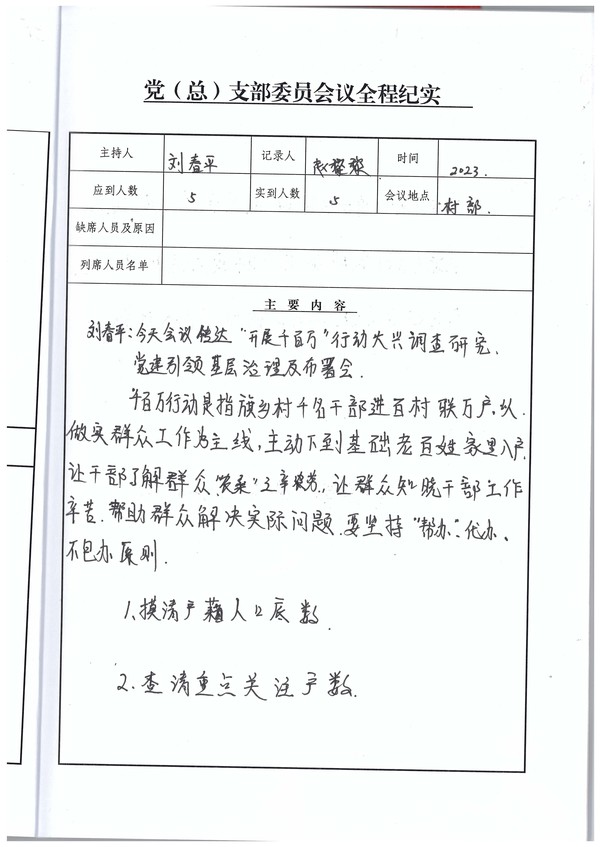 党（总）支部委员会议全程纪实
主持人 刘春平 记录人 时间 2023.
应到人数 5 实到人数 5 会议地点 村部.
缺席人员及原因
列席人员名单
主要内容
刘春平：今天会议传达"开展千百万"行动大兴调查研究、
党建引领基层治理及布署会.
千百万行动是指旗乡村千名干部进百村联万户,以
做实群众工作为主线,主动下到基础老百姓家里入户,
让干部了解群众"农桑"之辛劳,让群众知晓干部工作
辛苦.帮助群众解决实际问题.要坚持"帮办"、代办、
不包办原则.
1、摸清户籍人口底数.
2.查清重点关注户数.